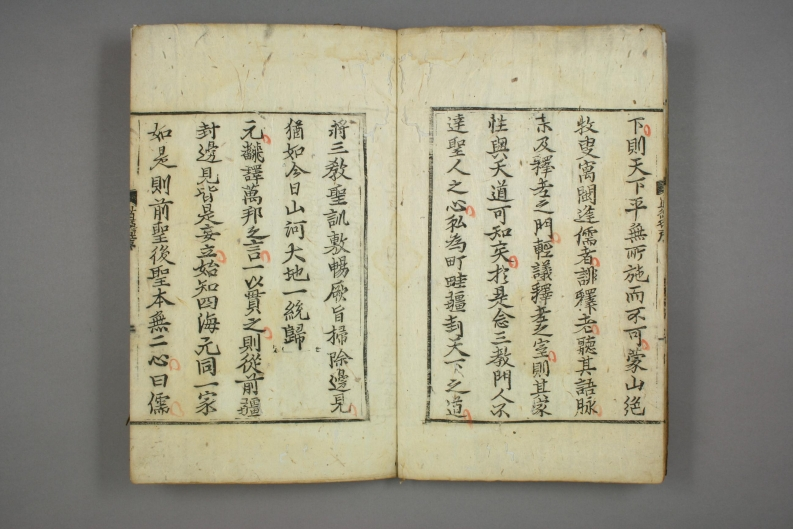 下則天下平無所施而不可蒙山絕
牧叟寓閩逢儒者誹釋老聽其語脉
未及釋老之門輕議釋老之室則其家
性與天道可知矣於是念三教門人不
達聖人之心私為町畦疆封天下之道
將三教聖訓敷暢厥旨掃除邊見
猶如今日山河大地一統歸
元飜譯萬邦之言一以貫之則從前疆
封邊見皆是妄立始知四海元同一家
如是則前聖後聖本無二心曰儒